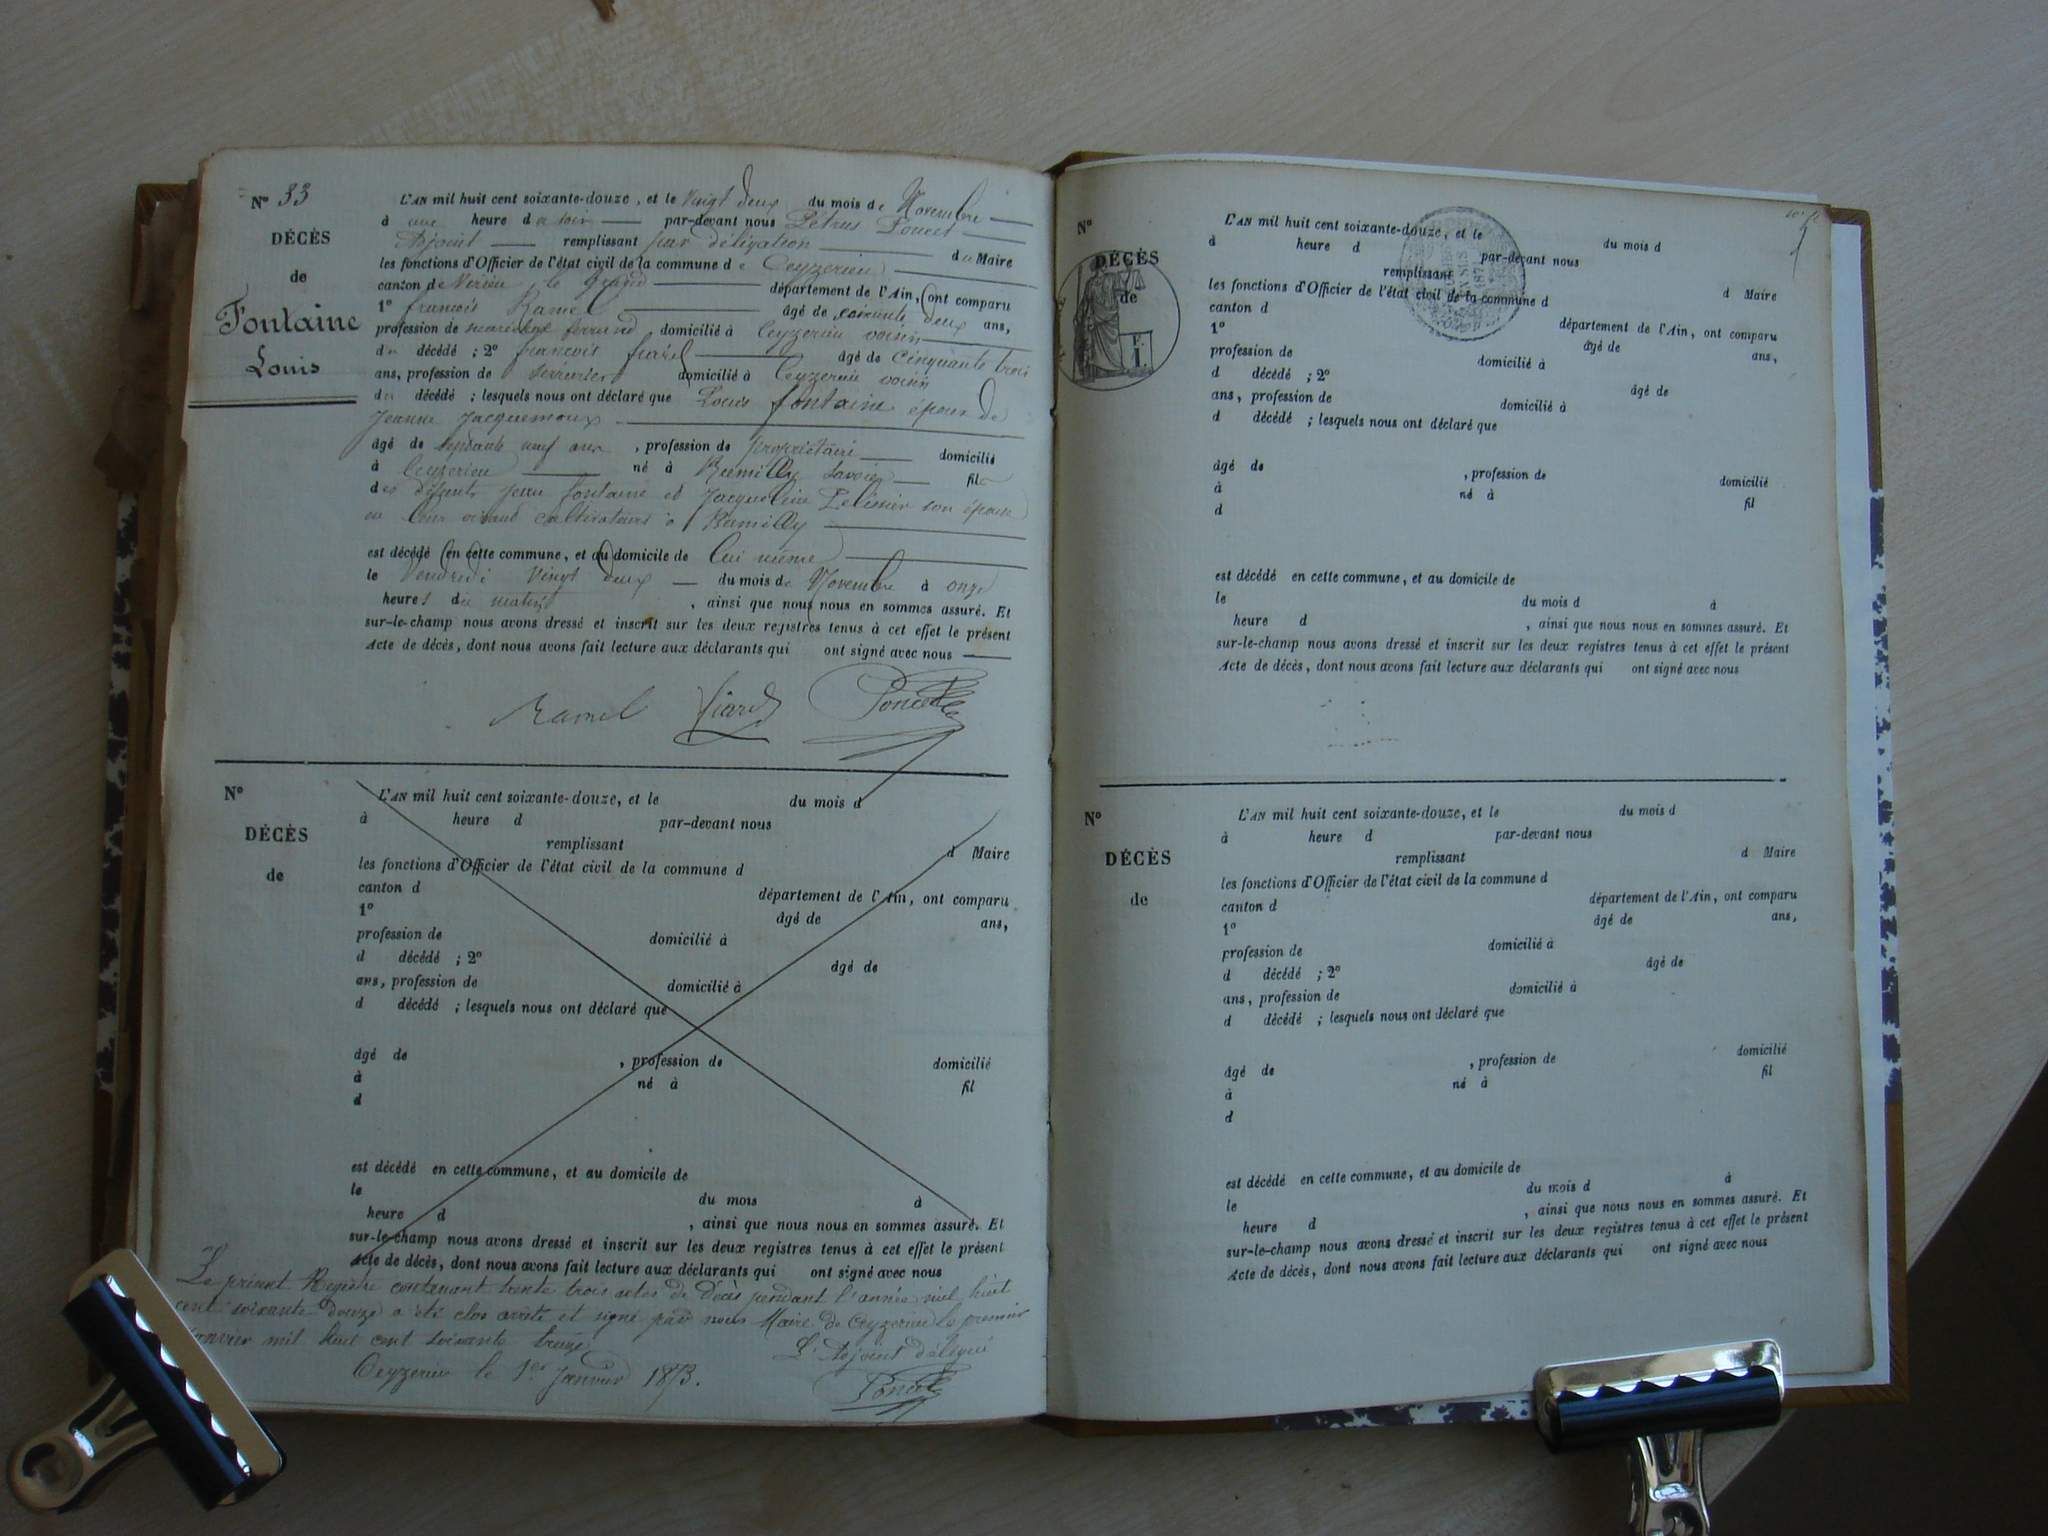 N° 33
DÉCÈS
de
Fontaine
Louis
L'AN mil huit cent soixante-douze, et le Vingt deux du mois de Novembre
à une heure du soir par-devant nous Pétrus Poncet
Adjoint remplissant par délégation du Maire
les fonctions d'Officier de l'état civil de la commune de Ceyzerieu
canton de Virieu le Grand département de l'Ain, ont comparu
1° françois Ramel âgé de soixante deux ans,
profession de marechal ferrand domicilié à Ceyzerieu voisin
du décédé ; 2° françois âgé de Cinquante trois
ans, profession de serrurier domicilié à Ceyzerieu voisin
du décédé ; lesquels nous ont déclaré que Louis fontaine époux de
Jeanne Jacquemoux
âgé de septante neuf ans, profession de propriétaire domicilié
à Ceyzerieu né à Rumilly Savoie fils
des défunts Jean fontaine et Jacqueline son épouse
en leur vivant cultivateurs à Rumilly
est décédé en cette commune, et au domicile de lui même
le Vendredi Vingt deux du mois de Novembre à onze
heures du matin, ainsi que nous nous en sommes assuré. Et
sur-le-champ nous avons dressé et inscrit sur les deux registres tenus à cet effet le présent
Acte de décès, dont nous avons fait lecture aux déclarants qui ont signé avec nous
Ramel Poncet
N°
DÉCÈS
de
L'AN mil huit cent soixante-douze, et le du mois d
à heure d par-devant nous
remplissant d Maire
les fonctions d'Officier de l'état civil de la commune d
canton d département de l'Ain, ont comparu
1° âgé de ans,
profession de domicilié à
d décédé ; 2° âgé de
ans, profession de domicilié à
d décédé ; lesquels nous ont déclaré que
âgé de , profession de domicilié
à né à fil
d
est décédé en cette commune, et au domicile de
le du mois à
heure d , ainsi que nous nous en sommes assuré. Et
sur-le-champ nous avons dressé et inscrit sur les deux registres tenus à cet effet le présent
Acte de décès, dont nous avons fait lecture aux déclarants qui ont signé avec nous
Le présent Registre contenant trente trois actes de décès pendant l'année mil huit
cent soixante douze a été clos arrêté et signé par nous Maire de Ceyzerieu le premier
Janvier mil huit cent soixante treize
L'Adjoint délégué
Ceyzerieu le 1er Janvier 1873.
Poncet
N°
DÉCÈS
de
L'AN mil huit cent soixante-douze, et le du mois d
à heure d par-devant nous
remplissant d Maire
les fonctions d'Officier de l'état civil de la commune d
canton d département de l'Ain, ont comparu
1° âgé de ans,
profession de domicilié à
d décédé ; 2° âgé de
ans, profession de domicilié à
d décédé ; lesquels nous ont déclaré que
âgé de , profession de domicilié
à né à fil
d
est décédé en cette commune, et au domicile de
le du mois d à
heure d , ainsi que nous nous en sommes assuré. Et
sur-le-champ nous avons dressé et inscrit sur les deux registres tenus à cet effet le présent
Acte de décès, dont nous avons fait lecture aux déclarants qui ont signé avec nous
N°
DÉCÈS
de
L'AN mil huit cent soixante-douze, et le du mois d
à heure d par-devant nous
remplissant d Maire
les fonctions d'Officier de l'état civil de la commune d
canton d département de l'Ain, ont comparu
1° âgé de ans,
profession de domicilié à
d décédé ; 2° âgé de
ans, profession de domicilié à
d décédé ; lesquels nous ont déclaré que
âgé de , profession de domicilié
à né à fil
d
est décédé en cette commune, et au domicile de
le du mois d à
heure d , ainsi que nous nous en sommes assuré. Et
sur-le-champ nous avons dressé et inscrit sur les deux registres tenus à cet effet le présent
Acte de décès, dont nous avons fait lecture aux déclarants qui ont signé avec nous